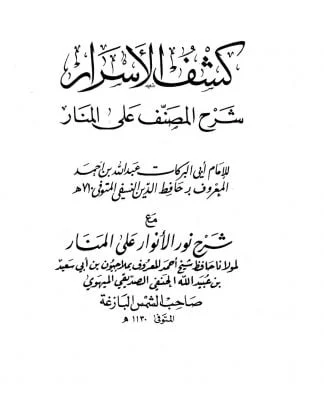 كشف الأسرار
شرح المصنف على المنار
للإمام أبي البركات عبد الله بن أحمد
المعروف بحافظ الدين النسفي المتوفى ٧١٠ هـ
مع
شرح نور الأنوار على المنار
لمولانا حافظ شيخ أحمد المعروف بملاجيون بن أبي سعيد
بن عبيد الله الحنفي الصديقي الميهوي
صاحب الشمس البازغة
المتوفى ١١٣٠ هـ